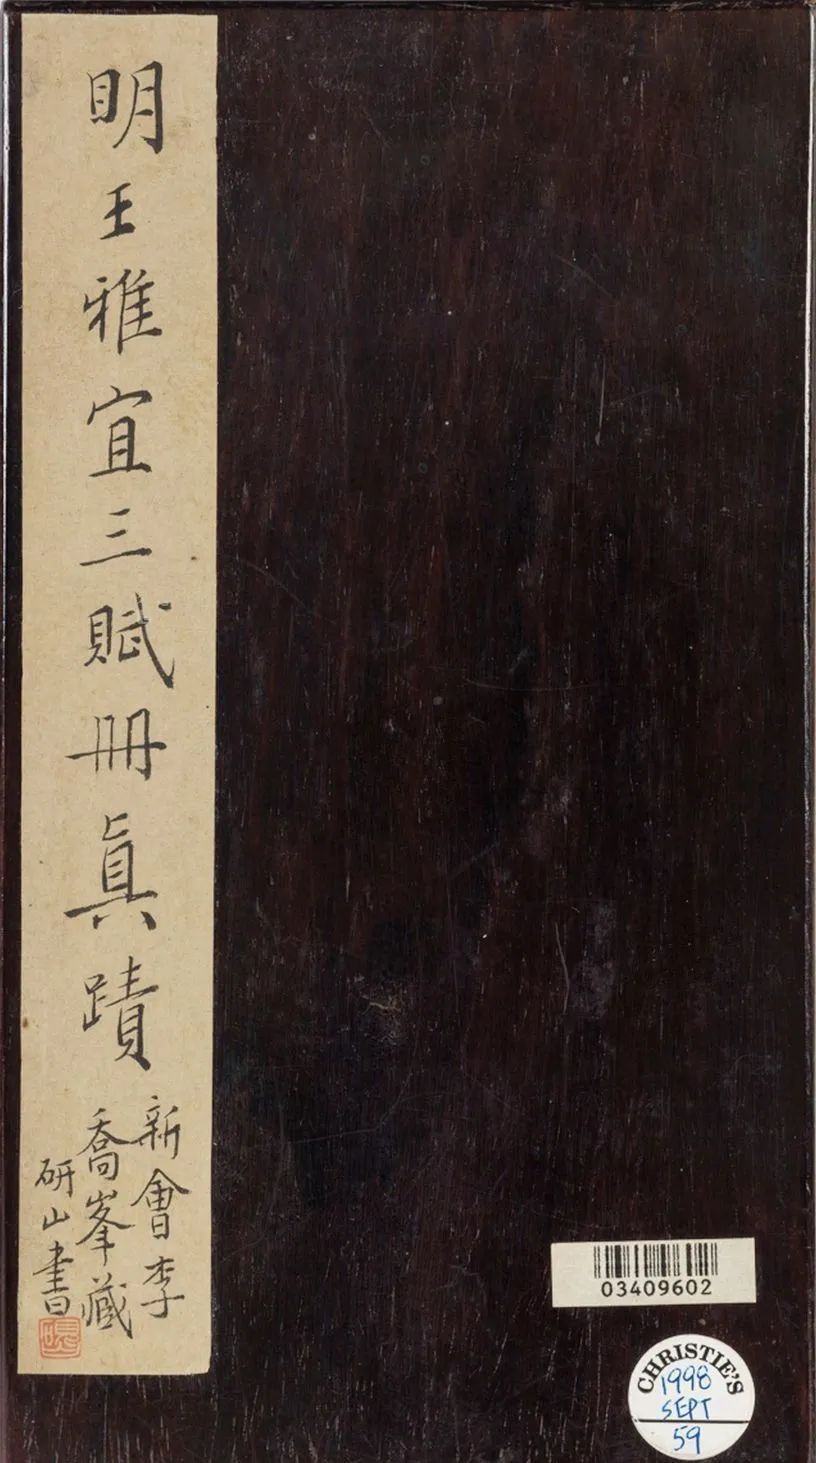 明王雅宜三賦冊眞蹟
新會李
喬峯藏
研山書
03409602
CHRISTIE'S
1998
SEPT
59